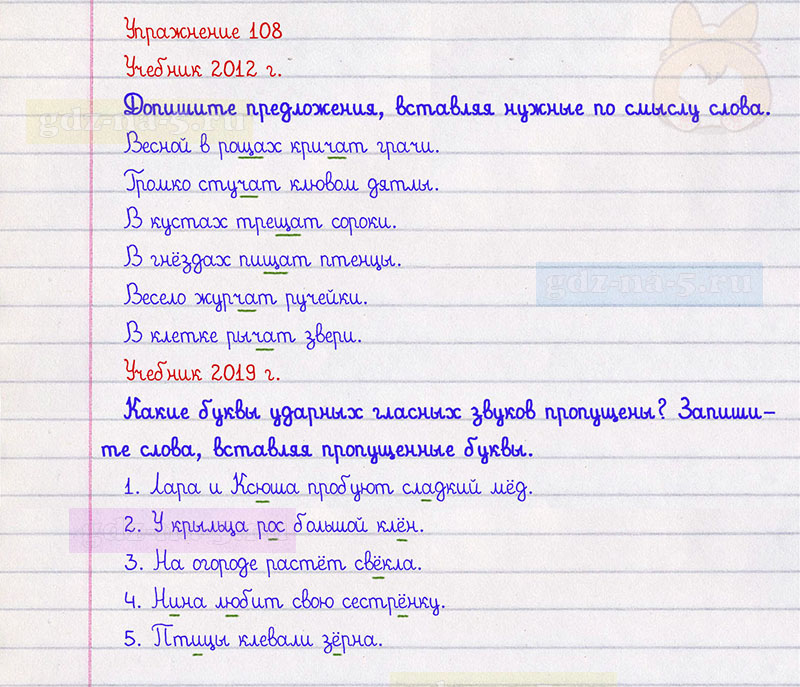 Упражнение 108
Учебник 2012 г.
Допишите предложения, вставляя нужные по смыслу слова.
gdz-na-5.ru
Весной в рощах кричат грачи.
Громко стучат клювом дятлы.
В кустах трещат сороки.
В гнёздах пищат птенцы.
gdz-na-5.ru
Весело журчат ручейки.
В клетке рычат звери.
Учебник 2019 г.
Какие буквы ударных гласных звуков пропущены? Запиши-
те слова, вставляя пропущенные буквы.
1. Лара и Ксюша пробуют сладкий мёд.
2. У крыльца рос большой клён.
gdz-na-5.ru
3. На огороде растёт свёкла.
4. Нина любит свою сестрёнку.
5. Птицы клевали зёрна.